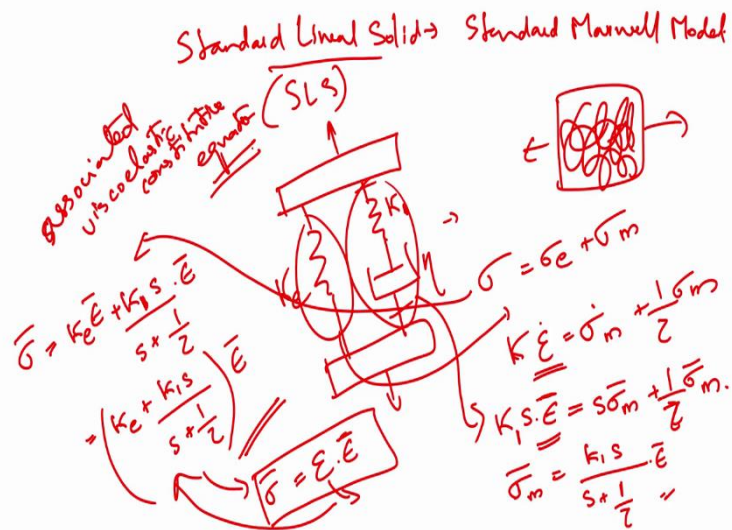 Standard Lineal Solid → Standard Maxwell Model
(SLS)
associated
viscoelastic
constitutive
equation
Kₑ
K₁
η
σ = σe + σm
K ε̇ = σ̇m + 1/τ σm
K₁ s. ε̄ = s σ̄m + 1/τ σ̄m.
σ̄m = k₁ s / s + 1/τ . ε̄
σ̄ = Kₑ ε̄ + k₁ s / s + 1/τ . ε̄
= (Kₑ + k₁ s / s + 1/τ) ε̄
σ̄ = Ɛ . ε̄